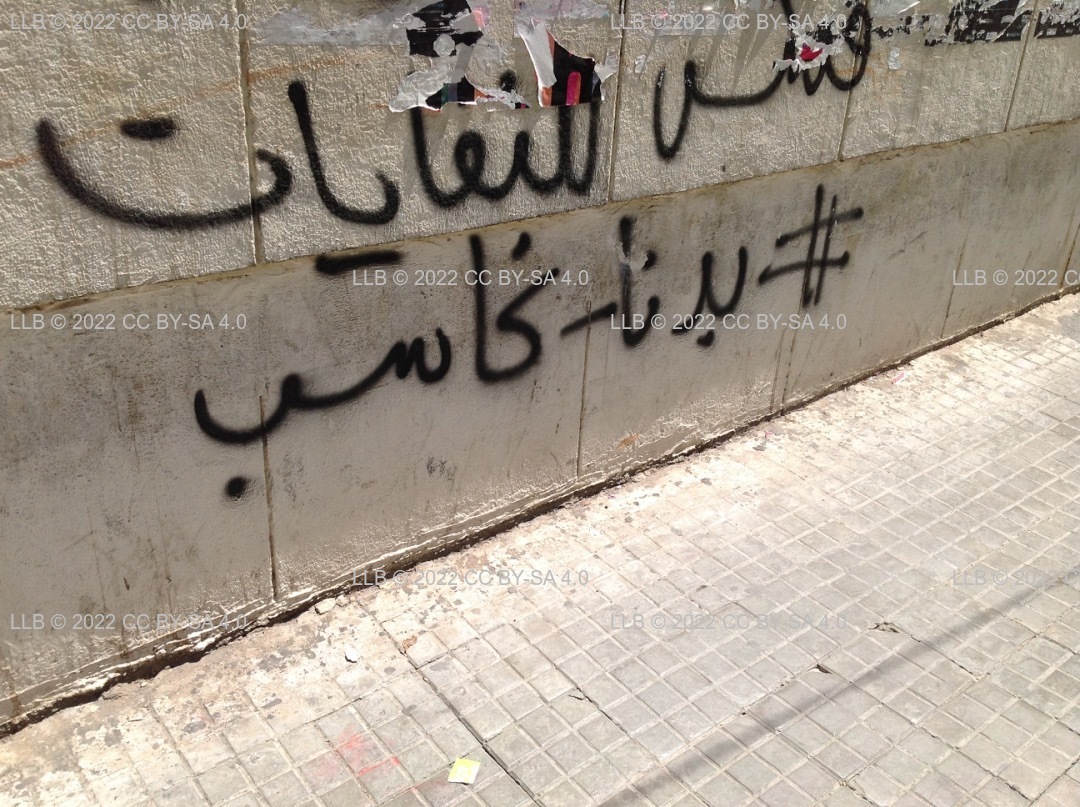 LLB © 2022 CC BY-SA 4.0 LLB © 2022 CC BY-SA 4.0
للنفايات
LLB © 2022 CC BY-SA 4.0 LLB © 2022
#بدنا_نحاسب
LLB © 2022 CC BY-SA 4.0 LLB © 2022 CC BY-SA 4.0
LLB © 2022 CC BY-SA 4.0 LLB © 2022
LLB © 2022 CC BY-SA 4.0 LLB © 2022 CC BY-SA 4.0